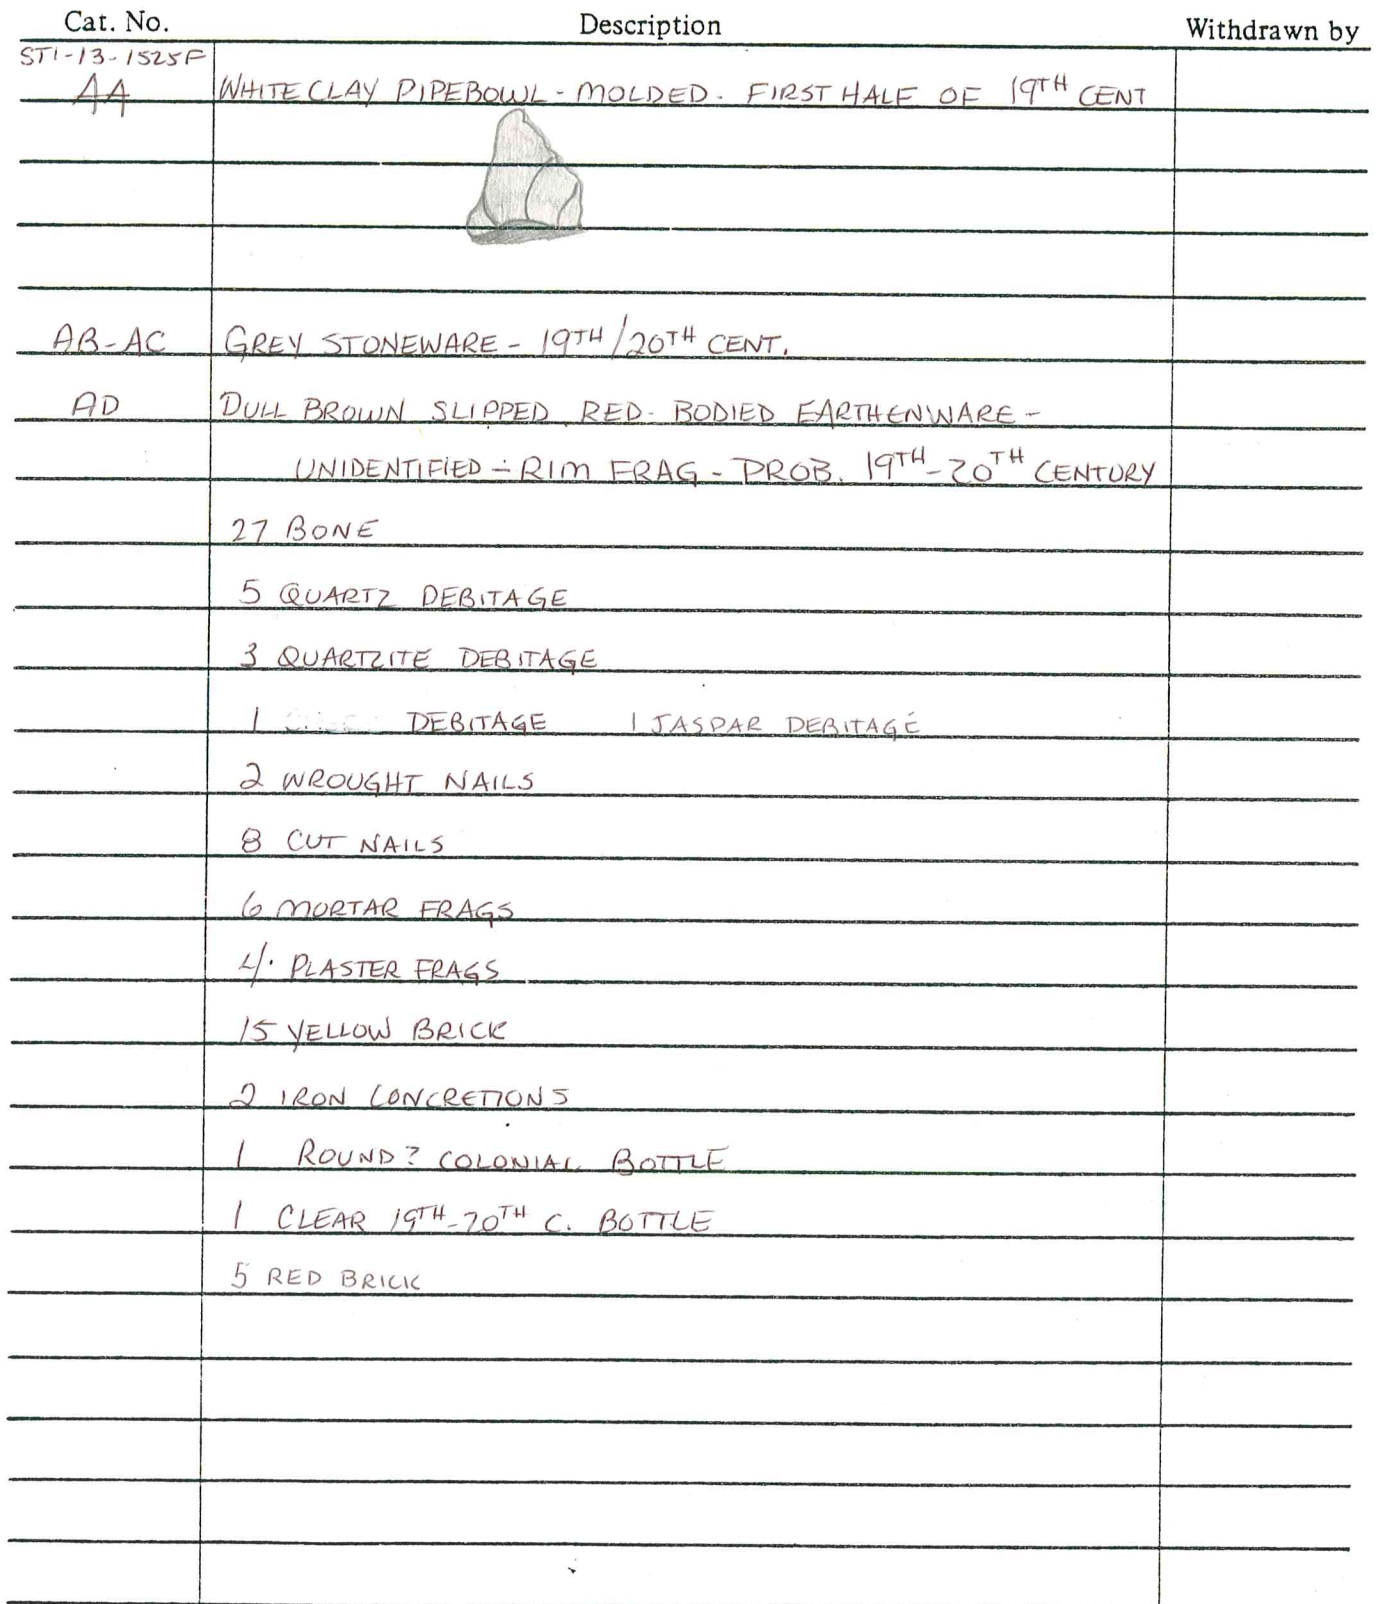 Cat. No. Description Withdrawn by
ST1-13-1525F
AA WHITE CLAY PIPEBOWL - MOLDED - FIRST HALF OF 19TH CENT
AB-AC GREY STONEWARE - 19TH/20TH CENT.
AD DULL BROWN SLIPPED RED-BODIED EARTHENWARE -
UNIDENTIFIED - RIM FRAG - PROB. 19TH-20TH CENTURY
27 BONE
5 QUARTZ DEBITAGE
3 QUARTZITE DEBITAGE
1 DEBITAGE 1 JASPAR DEBITAGE
2 WROUGHT NAILS
8 CUT NAILS
6 MORTAR FRAGS
4 PLASTER FRAGS
15 YELLOW BRICK
2 IRON CONCRETIONS
1 ROUND? COLONIAL BOTTLE
1 CLEAR 19TH-20TH C. BOTTLE
5 RED BRICK